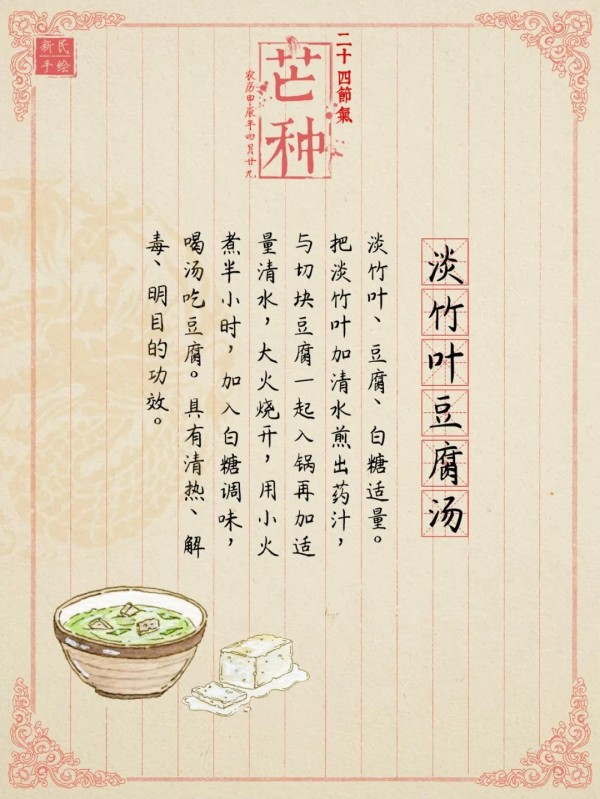 新民
手绘
二十四節氣
芒种
农历甲辰年四月廿九
淡竹叶豆腐汤
淡竹叶、豆腐、白糖适量。
把淡竹叶加清水煎出药汁，
与切块豆腐一起入锅再加适
量清水，大火烧开，用小火
煮半小时，加入白糖调味，
喝汤吃豆腐。具有清热、解
毒、明目的功效。